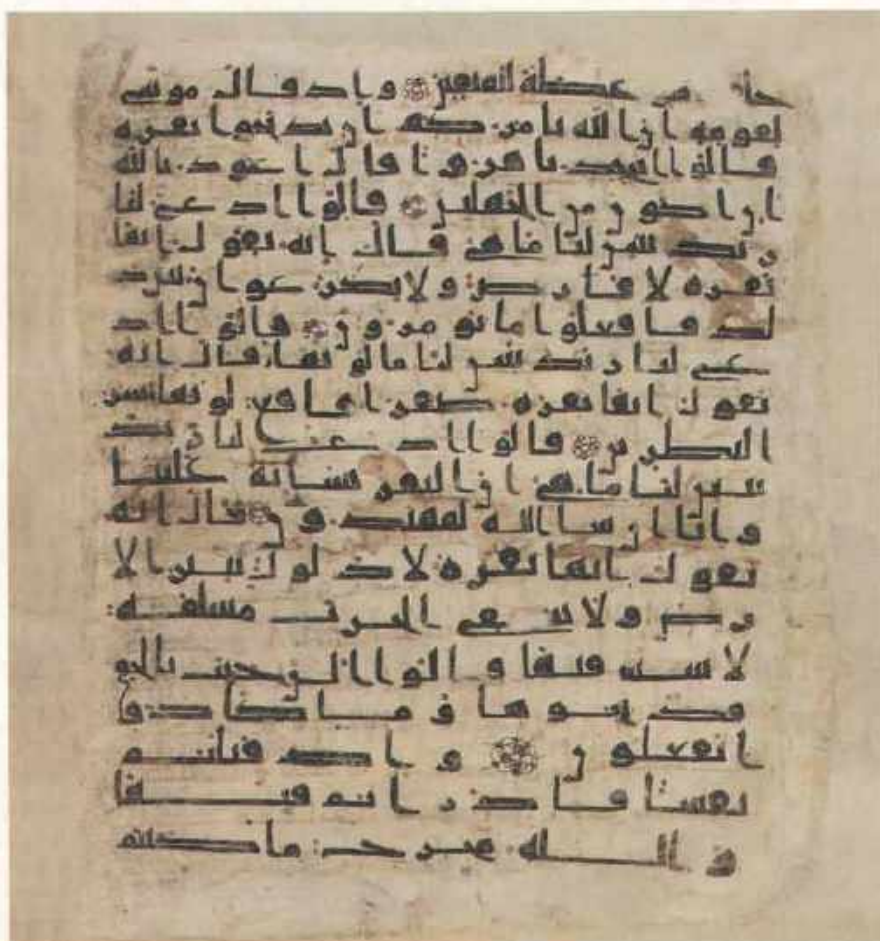 خلفها عظة للمتقين واذ قال موسى
لقومه ان الله يامركم ان تذبحوا بقرة
قالوا اتتخذنا هزوا قال اعوذ بالله
ان اكون من الجهلين قالوا ادع لنا
ربك يبين لنا ما هي قال انه يقول انها
بقرة لا فارض ولا بكر عوان بين ذ
لك فافعلوا ما تومرون قالوا اد
ع لنا ربك يبين لنا ما لونها قال انه
يقول انها بقرة صفرا فاقع لونها تسر
النظرين قالوا ادع لنا ربك
يبين لنا ما هي ان البقر تشبه علينا
وانا ان شا الله لمهتدون قال انه
يقول انها بقرة لا ذلول تثير الا
رض ولا تسقي الحرث مسلمة
لا شية فيها قالوا الن جيت بالحق
فذبحوها وما كادوا
يفعلون واذ قتلتم
نفسا فادرتم فيها
والله مخرج ما كنتم